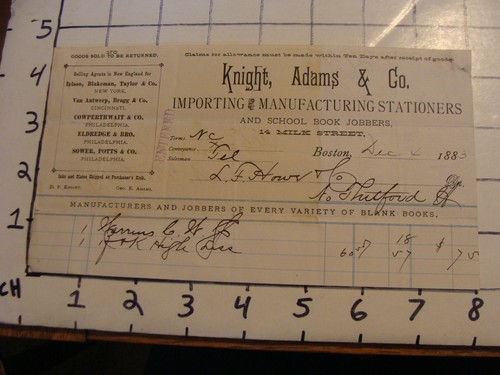 GOODS SOLD TO BE RETURNED.
Claims for allowance must be made within Ten Days after receipt of goods
Selling Agents in New England for
Ivison, Blakeman, Taylor & Co.
NEW YORK.
Van Antwerp, Bragg & Co.
CINCINNATI.
COWPERTHWAIT & CO.
PHILADELPHIA.
ELDREDGE & BRO.
PHILADELPHIA.
SOWER, POTTS & CO.
PHILADELPHIA.
Sold and Goods Shipped at Purchaser's Risk.
Geo. E. Adams.
ENTERED
Knight, Adams & Co.
IMPORTING AND MANUFACTURING STATIONERS
AND SCHOOL BOOK JOBBERS,
14 MILK STREET,
Terms
Conveyance
Salesman
Boston, Dec 4 1883
L. F. Howe & Co
No Thetford Vt
MANUFACTURERS AND JOBBERS OF EVERY VARIETY OF BLANK BOOKS.
1 Warrens 18
1 High 60 57 57 $ 75
5
4
3
2
1
CH 1 2 3 4 5 6 7 8